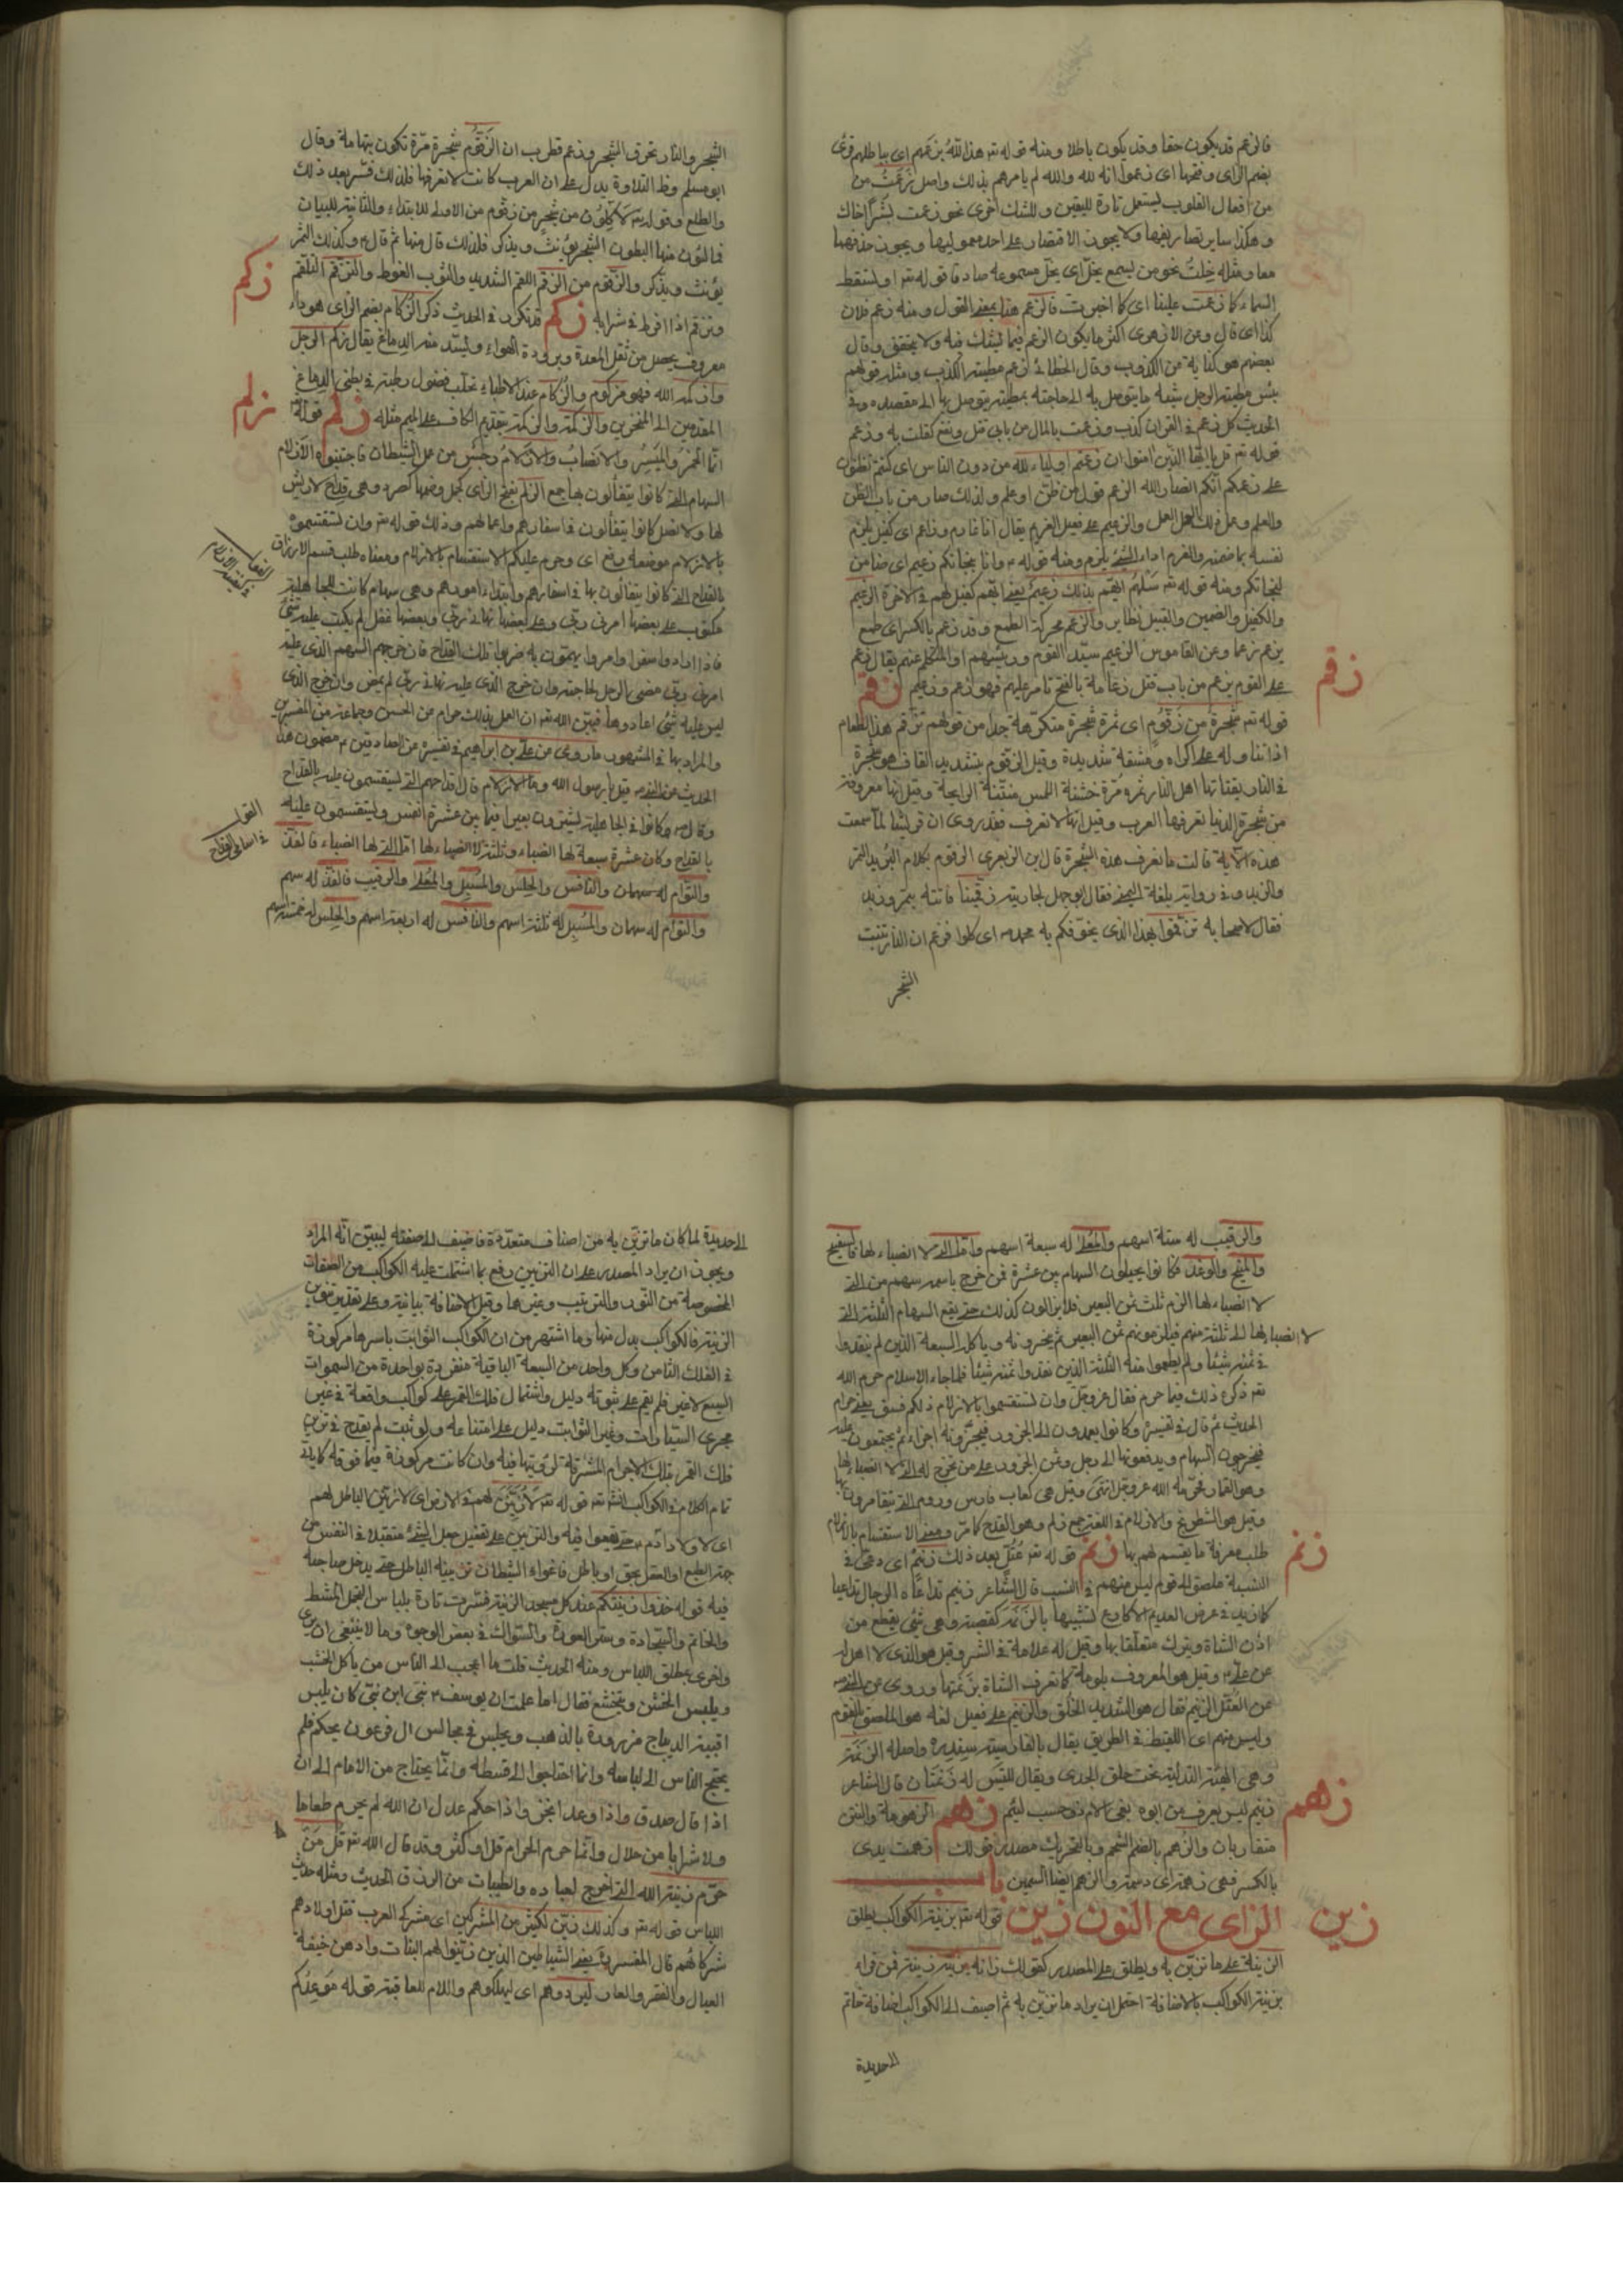 فالزعم قد يكون حقا وقد يكون باطلا ومنه قوله تعه هذا لله بزعمهم اى بباطلهم قرئ
بضم الزاى وفتحها اى زعموا انه لله والله لم يامرهم بذلك واصل زعمت من
من افعال القلوب ليستعمل تارة لليقين وللشك اخرى نحو زعمت بشرا اخاك
وهكذا ساير تصاريفها ولا يجوز الاقتصار على احد معموليها ويجوز حذفهما
معا ومثله خلت نحو من يسمع يخل اى يخل مسموعه صادقا قوله تعه او تسقط
السماء كما زعمت علينا اى كما اخبرت فالزعم هنا بمعنى القول ومنه زعم فلان
كذا اى قال وعن الازهرى اكثر ما يكون الزعم فيما يشك فيه ولا يتحقق وقال
بعضهم هو كناية عن الكذب وقال الخطائى زعم مطية الكذب ومثله قولهم
بئس مطية الرجل شبه ما يتوصل به الى حاجته بمطية يتوصل بها الى مقصده وفى
الحديث كل زعم فى القران كذب وزعمت بالمال من بابى قتل ونفع كفلت به وزعم
قوله تعه قل يا ايها الذين امنوا ان زعمتم اولياء لله من دون الناس اى كنتم تظنون
على زعمكم انكم انصار الله الزعم قول من ظن او علم ولذلك صار من باب الظن
والعلم وعمل ذلك العمل والزعيم على فعيل الغريم يقال انا غارم وزاعم اى كفيل يلزم
نفسه بما ضمنه والغرم اداء الشئ يلزم ومنه قوله م وانا بنجاتكم زعيم اى ضامن
لنجاتكم ومنه قوله تعه سلهم ايهم بذلك زعيم يعنى ايهم كفيل لهم فى الاخرة الزعيم
والكفيل والضمين والقبيل نظاير والزعم محركة الطمع وقد زعم بالكسر اى طمع
يزعم زعما وعن القاموس الزعيم سيد القوم ورئيسهم او المتكلم عنهم يقال زعم
على القوم يزعم من باب قتل زعامة بالفتح تامر عليهم فهو زعم وزعيم زقم
قوله تعه شجرة من زقوم اى ثمرة شجرة متكرهة جدا من قولهم تزقم هذا الطعام
اذا تناوله على اكراه ومشقة شديدة وقيل الزقوم بتشديد القاف هو شجرة
فى النار يقتاتها اهل النار ثمرة مرة خشنة اللمس منتنة الرايحة وقيل انها معروفة
من شجرة الدنيا تعرفها العرب وقيل انها لا تعرف فقد روى ان قريشا لما سمعت
هذه الاية قالت ما نعرف هذه الشجرة قال ابن الزبعرى الزقوم بكلام البربر التمر
والزبد وفى رواية بلغة اليمن فقال ابو جهل لجاريته زقمينا فاتته بتمر وزبد
فقال لاصحابه تزقموا بهذا الذى يخوفكم به محمد ص اى كلوا فزعم ان النار تنبت
الشجر
زقم
الشجر والنار تحرق الشجر وزعم قطرب ان الزقوم شجرة مرة تكون بتهامة وقال
ابو مسلم وظ التلاوة يدل على ان العرب كانت لا تعرفها فلذلك فسر بعد ذلك
والطلع وقوله تعه لاكلون من شجر من زقوم من الاولى للابتداء والثانية للبيان
فمالؤن منها البطون الشجر يؤنث ويذكر فلذلك قال منها ثم قال م وكذلك الثمر
يؤنث ويذكر والزقوم من الزقم اللقم الشديد والشرب المفرط والتزقم التلقم
وتزقم اذا افرط فى شرابه زكم قد تكرر فى الحديث ذكر الزكام بضم الزاى هو داء
معروف يحصل من ثقل المعدة وبرودة الهواء ولتسد منه الدماغ يقال زكم الرجل
وازكمه الله فهو مزكوم والزكام عند الاطباء تحلب فضول رطبة فى بطنى الدماغ
المقدمين الى المنخرين والزكمة والزكمة بتقديم الكاف على الميم مثله زلم قوله تعه
انما الخمر والميسر والانصاب والازلام رجس من عمل الشيطان فاجتنبوه الازلام
السهام التى كانوا يتفألون بها جمع الزلم بفتح الزاى كجمل وضمها كصرد وهى قداح لا ريش
لها ولا نصل كانوا يتفألون فى اسفارهم واعمالهم وذلك قوله تعه وان تستقسموا
بالازلام موضعه رفع اى وحرم عليكم الاستقسام بالازلام ومعناه طلب قسم الارزاق
بالقداح التى كانوا يتفألون بها فى اسفارهم وابتداء امورهم وهى سهام كانت للجاهلية
مكتوب على بعضها امرنى ربى وعلى بعضها نهانى ربى وبعضها غفل لم يكتب عليه شئ
فاذا ارادوا سفرا او امرا يهتمون به ضربوا تلك القداح فان خرج السهم الذى عليه
امرنى ربى مضى الرجل لحاجته وان خرج الذى عليه نهانى ربى لم يمض وان خرج الذى
ليس عليه شئ اعادوها فبين الله تعه ان العمل بذلك حرام عن الحسن وجماعة من المفسرين
والمراد بها فى المشهور ما روى عن على بن ابراهيم فى تفسيره عن الصادقين م مضمون هذا
الحديث عن النبى ص قيل يا رسول الله وما الازلام قال قداحهم التى يستقسمون عليه بالقداح
وقال م كانوا فى الجاهلية يشترون بعيرا فيما بين عشرة انفس ويستقسمون عليه
بالقداح وكان عشرة سبعة لها انصباء وثلثة لا انصباء لها اما التى لها انصباء فالفذ
والتوام له سهمان والنافس والحلس والمسبل والمعلى والرقيب فالفذ له سهم
والتوام له سهمان والمسبل له ثلثة اسهم والنافس له اربعة اسهم والحلس له خمسة اسهم
زكم
زلم
والرقيب له ستة اسهم والمعلى له سبعة اسهم واما التى لا انصباء لها فالسفيح
والمنيح والوغد فكانوا يجيلون السهام بين عشرة فمن خرج باسمه سهم من التى
لا انصباء لها الزم ثلث ثمن البعير فلا يزالون كذلك حتى يقع السهام الثلثة التى
لا انصباء لها الى ثلثة منهم فيلزمونهم ثمن البعير ثم ينحرونه وياكل السبعة الذين لم ينقدوا
فى ثمنه شيئا ولم يطعموا منه الثلثة الذين نقدوا ثمنه شيئا فلما جاء الاسلام حرم الله
تعه ذكره ذلك فيما حرم فقال عز وجل وان تستقسموا بالازلام ذلكم فسق يعنى حرام
الحديث ثم قال فى تفسيره وكانوا يعمدون الى الجزور فيجزونه اجزاء ثم يجتمعون عليه
فيخرجون السهام ويدفعونها الى رجل وثمن الجزور على من يخرج له التى لا انصباء لها
وهو القمار فحرمه الله عز وجل انتهى وقيل هى كعاب فارس وروم التى يتقامرون بها
وقيل هو الشطرنج والازلام فى اللغة جمع زلم وهو القدح كما مر ومعنى الاستقسام بالازلام
طلب معرفة ما يقسم لهم بها زنم قوله تعه عتل بعد ذلك زنيم اى دعى فى
النسبة ملصق الى قوم ليس منهم فى النسب قال الشاعر زنيم تداعاه الرجال تداعيا
كما زيد فى عرض الاديم الاكارع تشبيها بالزنمة كقصبة وهى شئ يقطع من
اذن الشاة ويترك متعلقا بها وقيل له علامة فى الشر وقيل هو الذى لا اصل له
عن على م وقيل هو المعروف بلومه كما تعرف الشاة بزنمتها وروى عن النبى ص
عن العتل الزنيم فقال هو الشديد الخلق والزنيم على فعيل لغة هو الملصق بالقوم
وليس منهم اى اللقيط فى الطريق يقال بالفارسية واصله الزنمة
وهى الهنة المتدلية تحت حلق الجدى ويقال للتيس له زنمتان قال الشاعر
زنيم ليس يعرف من ابوه بغى الام ذو حسب لئيم زهم الزهومة والنتن
متقاربان والزهم بالضم الشحم وبالتحريك مصدر قولك زهمت يدى
بالكسر فهى زهمة اى دسمة والزهم ايضا السمين باب
الزاى مع النون زين قوله تعه بزينة الكواكب يطلق
الزينة على ما تزين به ويطلق على المصدر كقولك زانه يزينه زينة فمن قراه
بزينة الكواكب بالاضافة احتمل ان يراد ما تزين به ثم اضيف الى الكواكب اضافة خاتم
الى حديدة
زنم
زهم
زين
الى حديدة لما كان ما تزين به من اصناف متعددة فاضيف الى صنفه ليبين انه المراد
ويجوز ان يراد المصدر على ان التزيين رفع بما اشتملت عليه الكواكب من الصفات
المخصوصة من النور والترتيب وغيرها وقيل الاضافة بيانية وعلى تقدير تنوين
الزينة فالكواكب بدل منها وما اشتهر من ان الكواكب الثوابت باسرها مركوزة
فى الفلك الثامن وكل واحد من السبعة الباقية منفردة بواحدة من السموات
السبع لا غير فلم يقم على ثبوته دليل واشتمال فلك القمر على كواكب واقعة فى غير
مجرى السيارات وغير الثوابت دليل على امتناعه ولو ثبت لم يقدح فى تزيين
فلك القمر بتلك الاجرام المشرقة لرؤيتها فيه وان كانت مركوزة فيما فوقه كما ياتى
تمام الكلام فى الكواكب انشه تعه قوله تعه لازينن لهم فى الارض اى لازينن الباطل لهم
اى لاولاد ادم م حتى يقعوا فيه والتزيين على تفعيل جعل الشئ متقبلا فى النفس من
جهة الطبع او العقل بحق او باطل فاغواء الشيطان تزيينه الباطل حتى يدخل صاحبه
فيه قوله خذوا زينتكم عند كل مسجد الزينة فسرت تارة بلباس التجمل المشط
والخاتم والسجادة وستر العورة والسواك فى بعض الوجوه وما لا ينبغى ان يرى
واخرى بمطلق اللباس ومنه الحديث قلت ما اعجب الى الناس من ياكل الجشب
ويلبس الخشن ويتخشع فقال اما علمت ان يوسف م نبى ابن نبى كان يلبس
اقبية الديباج مزرورة بالذهب ويجلس فى مجالس ال فرعون يحكم فلم
يحتج الناس الى لباسه وانما احتاجوا الى قسطه وانما يحتاج من الامام الى ان
اذا قال صدق واذا وعد انجز واذا حكم عدل ان الله لم يحرم طعاما
ولا شرابا من حلال وانما حرم الحرام قل او كثر وقد قال الله تعه قل من
حرم زينة الله التى اخرج لعباده والطيبات من الرزق الحديث ومثله حديث
اللباس قوله تعه وكذلك زين لكثير من المشركين اى مشركى العرب قتل اولادهم
شركائهم قال المفسرون يعنى الشياطين الذين زينوا لهم البنات وادهن خيفة
العيال والفقر والعار ليردوهم اى ليهلكوهم واللام للعاقبة قوله موعدكم